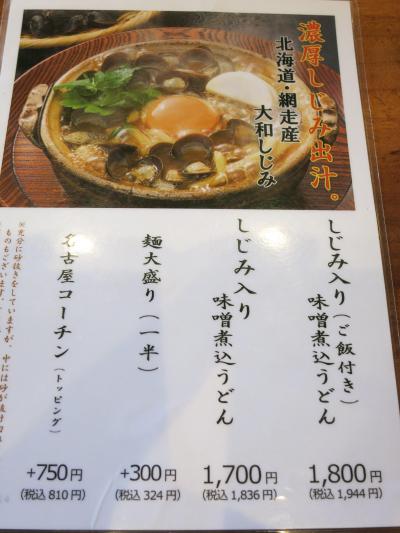 濃厚しじみ出汁。
北海道・網走産
大和しじみ
しじみ入り(ご飯付き)
味噌煮込うどん
1,800円
(税込 1,944円)
しじみ入り
味噌煮込うどん
1,700円
(税込 1,836円)
麺大盛り(一半)
+300円
(税込 324円)
名古屋コーチン(トッピング)
+750円
(税込 810円)
※充分に砂抜きをしていますが、中には砂が抜け
ものもございます。